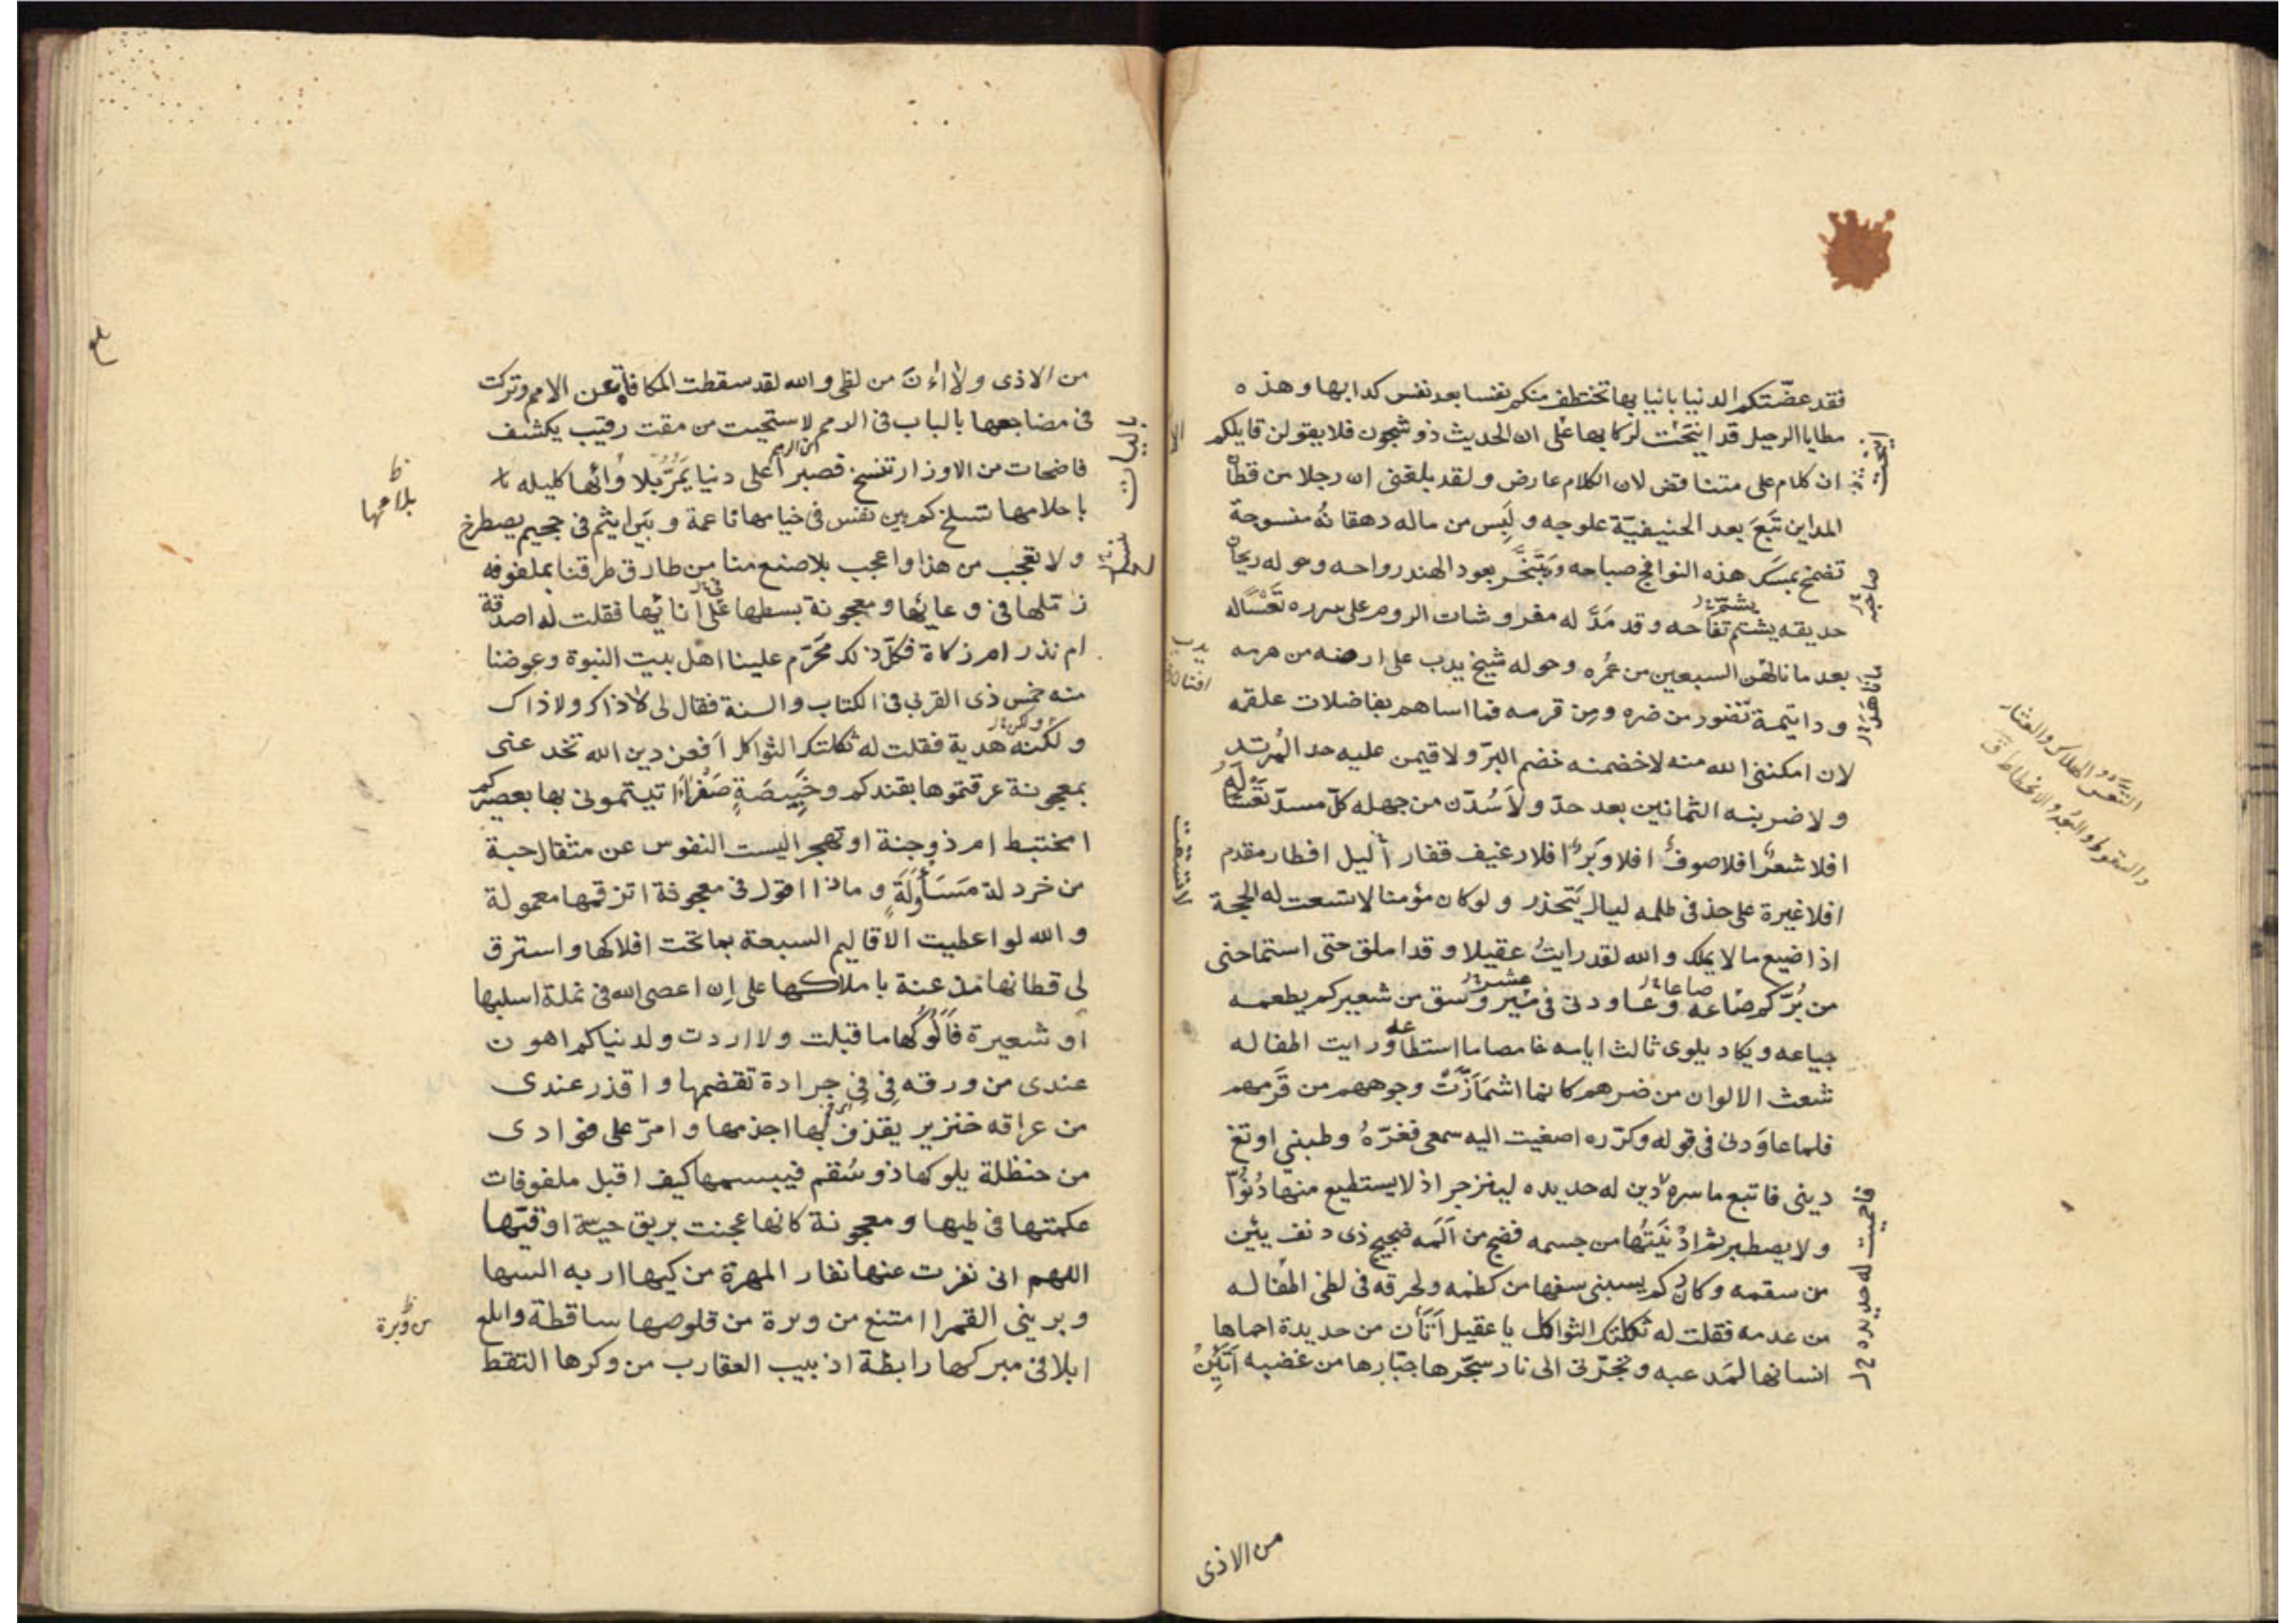 فقد عضّتكم الدنيا بانيابها تختطف منكم نفسا بعد نفس كدابها وهذه
مطايا الرحيل قد انيخت لركابها على ان الحديث ذو شجون فلا يقولن قايلكم
ان كلام على متناقض لان الكلام عارض ولقد بلغنى ان رجلا من قطان
المداين تبع بعد الحنيفيّة علوجه ولبس من ماله دهقانه منسوجة
تضمخ بمسك هذه النوافج صباحه وتبخّر بعود الهند رواحه وحوله ريحان
حديقه يشتم تفاحه وقد مدّ له مفروشات الروم على سرره تعسًا له
بعد ما ناهز السبعين من عمره وحوله شيخ يدب على ارضه من هرمه
وذا يتمة تضور من ضره ومن قرمه فما اساهم بفاضلات علقمه
لان امكننى الله منه لاخضمنه خضم البرّ ولا قيمن عليه حد المرتد
ولا ضربنه الثمانين بعد حدّ ولاسُدّن من جهله كلّ مسدّ تعسًا له
افلا شعر افلا صوف افلا وبر افلا رغيف قفار الليل افطار مقدم
افلا عبرة على خد فى ظلمه ليال يتحذر ولو كان مؤمنا لاتسقت له الحجة
اذا ضيع ما لا يملك والله لقد رايت عقيلا وقد املق حتى استماحنى
من بُرّكم صاعه وعاودنى فى عشر وسق من شعيركم يطعمه
جياعه ويكاد يلوى ثالث ايامه خامصا ما استطاعه ورايت اطفاله
شعث الالوان من ضرهم كانما اشمازّت وجوههم من قرمهم
فلما عاودنى فى قوله وكرّره اصغيت اليه سمعى فغرّه وظننى اوتغ
دينى فاتبع ما سره لادين له حديده لينزجر اذ لا يستطيع منها دنوّا
ولا يصطبر ثم ادنيتها من جسمه فضج من المه ضجيج ذى دنف يئن
من سقمه وكاد يسبنى سفها من كظمه ولحرقه فى لظى اطفاله
من عدمه فقلت له ثكلتك الثواكل يا عقيل اتان من حديدة احماها
انسانها لمدعبه وتجرّنى الى نار سجّرها جبّارها من غضبه اتئن
انيخت
صاحبه
ناهز
فاحميت له حديده
لاتسقت
التعس الهلاك والعثار
والسقوط والبعد والانحطاط ق
من الاذى
من الاذى ولا اءنّ من لظى والله لقد سقطت المكافاة عن الامم وتركت
فى مضاجعها باليات فى الرمم لاستحييت من مقت رقيب يكشف
فاضحات من الاوزار تنسخ فصبرا على دنيا يمرّ بلاوائها كليله
باحلامها تنسلخ كم بين نفس فى خيامها ناعمة وبين اثيم فى جحيم يصطرخ
ولا تعجب من هذا واعجب بلا صنع منا من طارق طرقنا بملفوفه
زملها فى وعائها ومعجونة بسطها على انائها فقلت له اصدقة
ام نذر ام زكاة فكلّ ذلك محرّم علينا اهل بيت النبوة وعوضنا
منه خمس ذى القربى فى الكتاب والسنة فقال لى لا ذاك ولا ذاك
ولكنه هدية فقلت له ثكلتك الثواكل افعن دين الله تخدعنى
بمعجونة عرقتموها بقندكم وخبيصة صفراء اتيتمونى بها بعصيركم
امختبط ام ذو جنة او تهجر اليست النفوس عن مثقال حبة
من خردلة مسأولة وماذا اقول فى معجونة اتزقمها معمولة
والله لو اعطيت الاقاليم السبعة بما تحت افلاكها واسترق
لى قطانها مذعنة باملاكها على ان اعصى الله فى نملة اسلبها
او شعيرة فالوكها ما قبلت ولا اردت ولدنياكم اهون
عندى من ورقه فى فى جرادة تقضمها واقذر عندى
من عراقه خنزير يقذف بها اجذمها وامرّ على فوادى
من حنظلة يلوكها ذو سُقم فيبسمها كيف اقبل ملفوفات
عكمتها فى طيها ومعجونة كانها عجنت بريق حية او قيّها
اللهم انى نفرت عنها نفار المهرة من كيها اريه السها
ويرينى القمر اامتنع من وبرة من قلوصها ساقطة وابلع
ابلا فى مبركها رابطة ادبيب العقارب من وكرها التقط
باليات
من وبرة